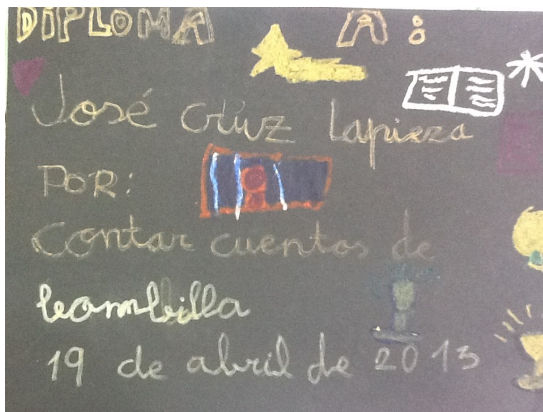 DIPLOMA A:
José Cruz Lapieza
POR:
Contar cuentos de
bombilla
19 de abril de 2013